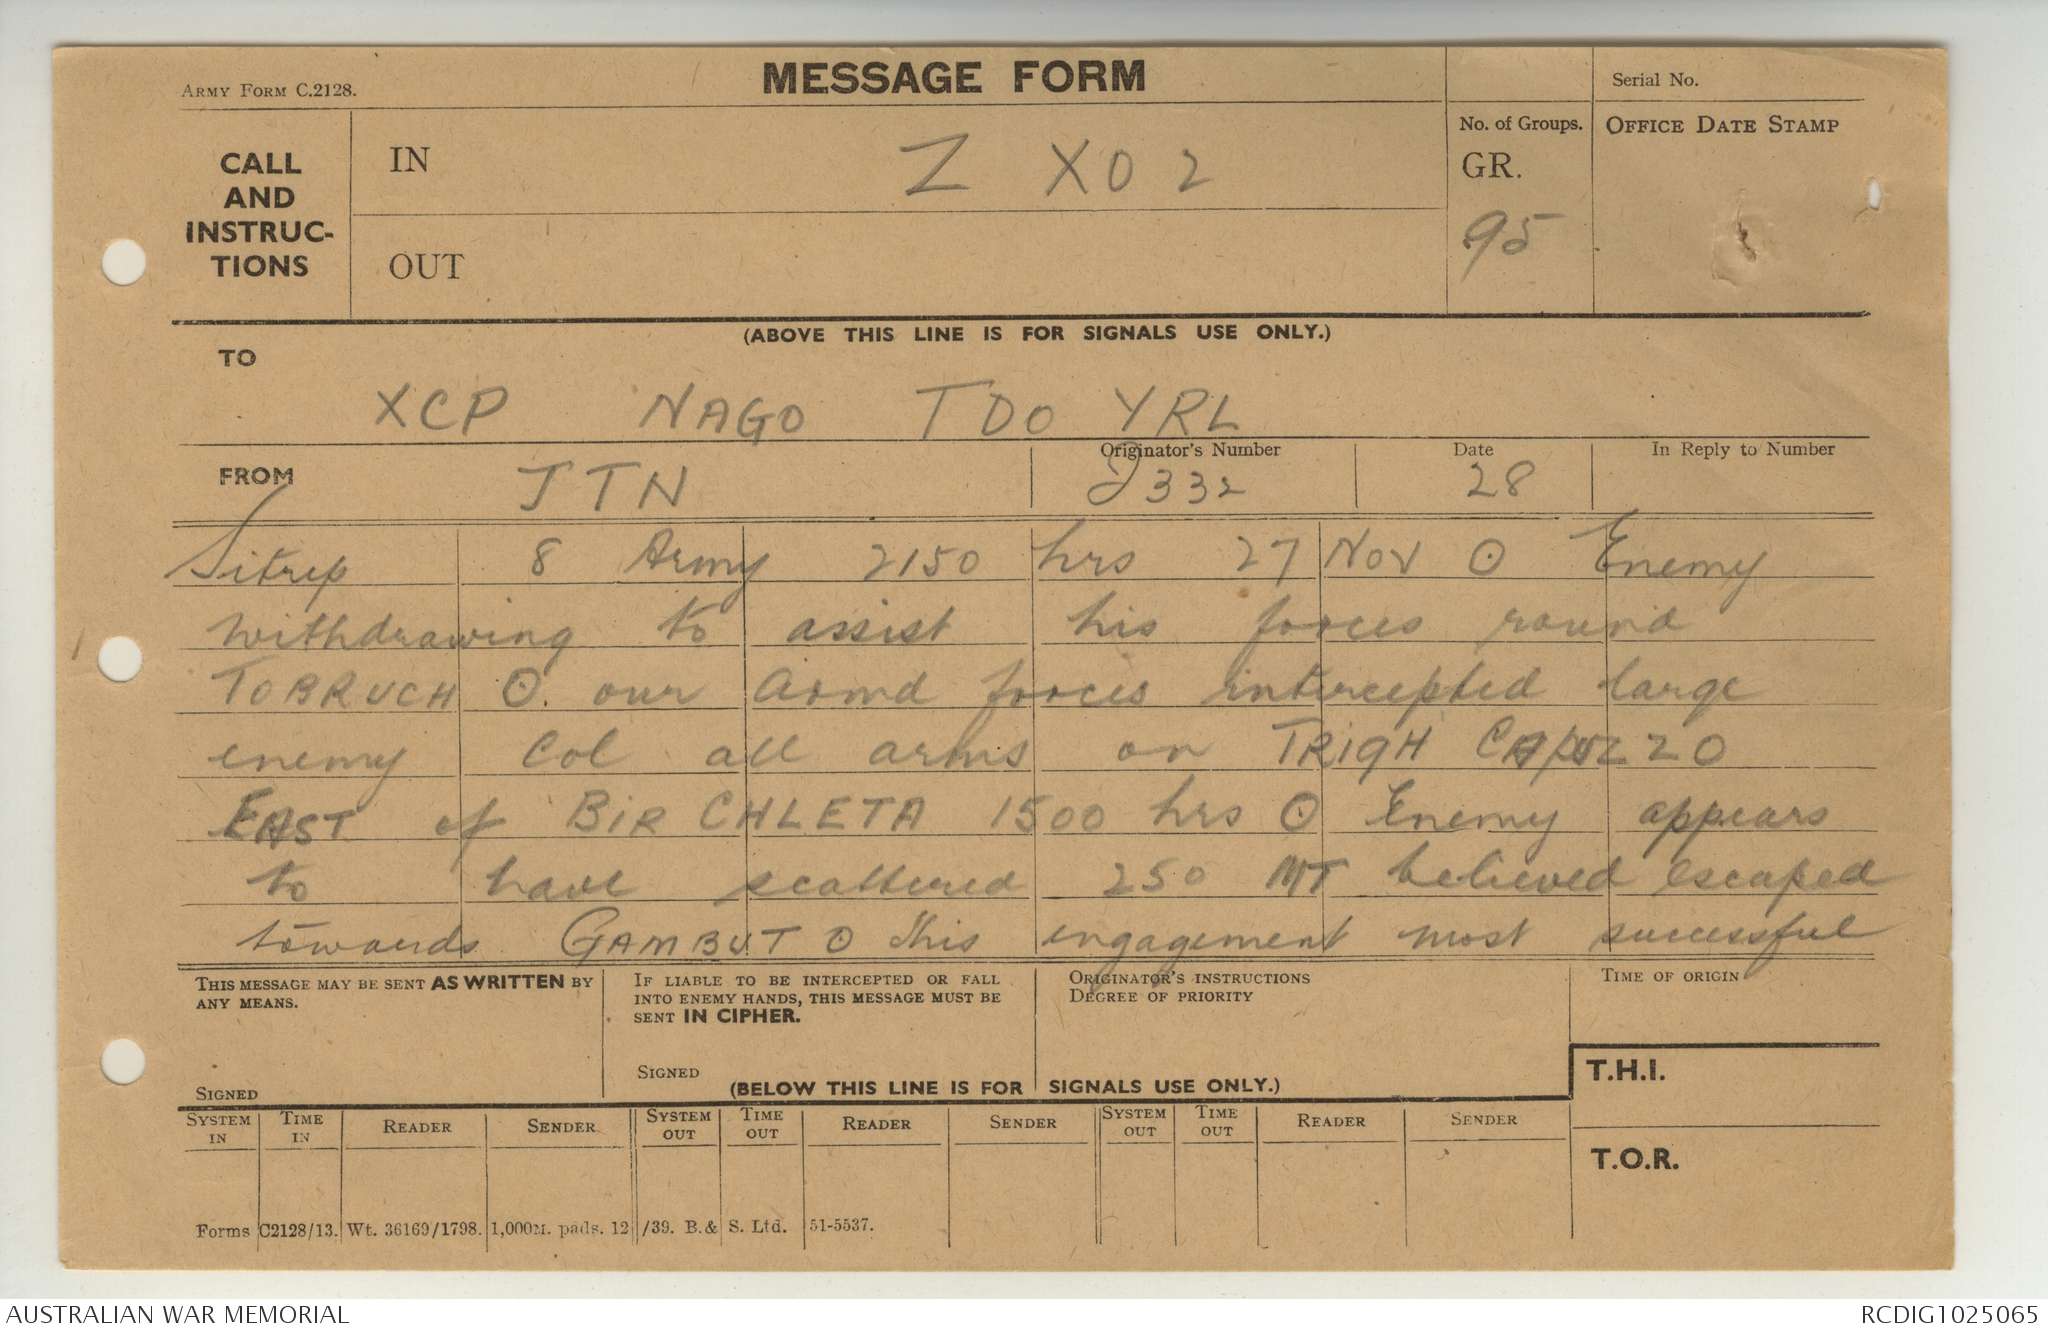 ARMY FORM C.2128.
MESSAGE FORM
Serial No.
CALL AND INSTRUC-TIONS
IN
Z XO2
No. of Groups.
GR.
95
OFFICE DATE STAMP
OUT
(ABOVE THIS LINE IS FOR SIGNALS USE ONLY.)
TO
XCP NAGO TDO YRL
FROM
JTN
Originator's Number
I332
Date
28
In Reply to Number
Sitrep 8 Army 2150 hrs 27 Nov O Enemy
withdrawing to assist his forces round
TOBRUCH O. our armd forces intercepted large
enemy Col all arms on TRIGH CAPUZZO
EAST of BIR CHLETA 1500 hrs O Enemy appears
to have scattered 250 MT believed escaped
towards GAMBUT O This engagement most successful
THIS MESSAGE MAY BE SENT AS WRITTEN BY
ANY MEANS.
SIGNED
IF LIABLE TO BE INTERCEPTED OR FALL
INTO ENEMY HANDS, THIS MESSAGE MUST BE
SENT IN CIPHER.
SIGNED
ORIGINATOR'S INSTRUCTIONS
DEGREE OF PRIORITY
TIME OF ORIGIN
(BELOW THIS LINE IS FOR SIGNALS USE ONLY.)
T.H.I.
SYSTEM IN
TIME IN
READER
SENDER
SYSTEM OUT
TIME OUT
READER
SENDER
SYSTEM OUT
TIME OUT
READER
SENDER
T.O.R.
Forms C2128/13. Wt. 36169/1798. 1,000M. pads. 12/39. B.& S. Ltd. 51-5537.
AUSTRALIAN WAR MEMORIAL
RCDIG1025065